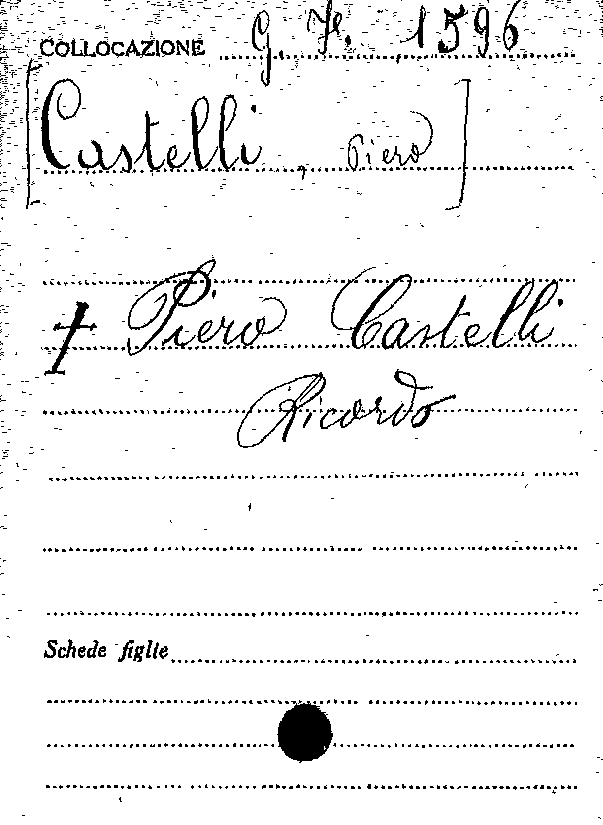 COLLOCAZIONE G. F. 1596
[Castelli, Piero]
† Piero Castelli
Ricordo
Schede figlie